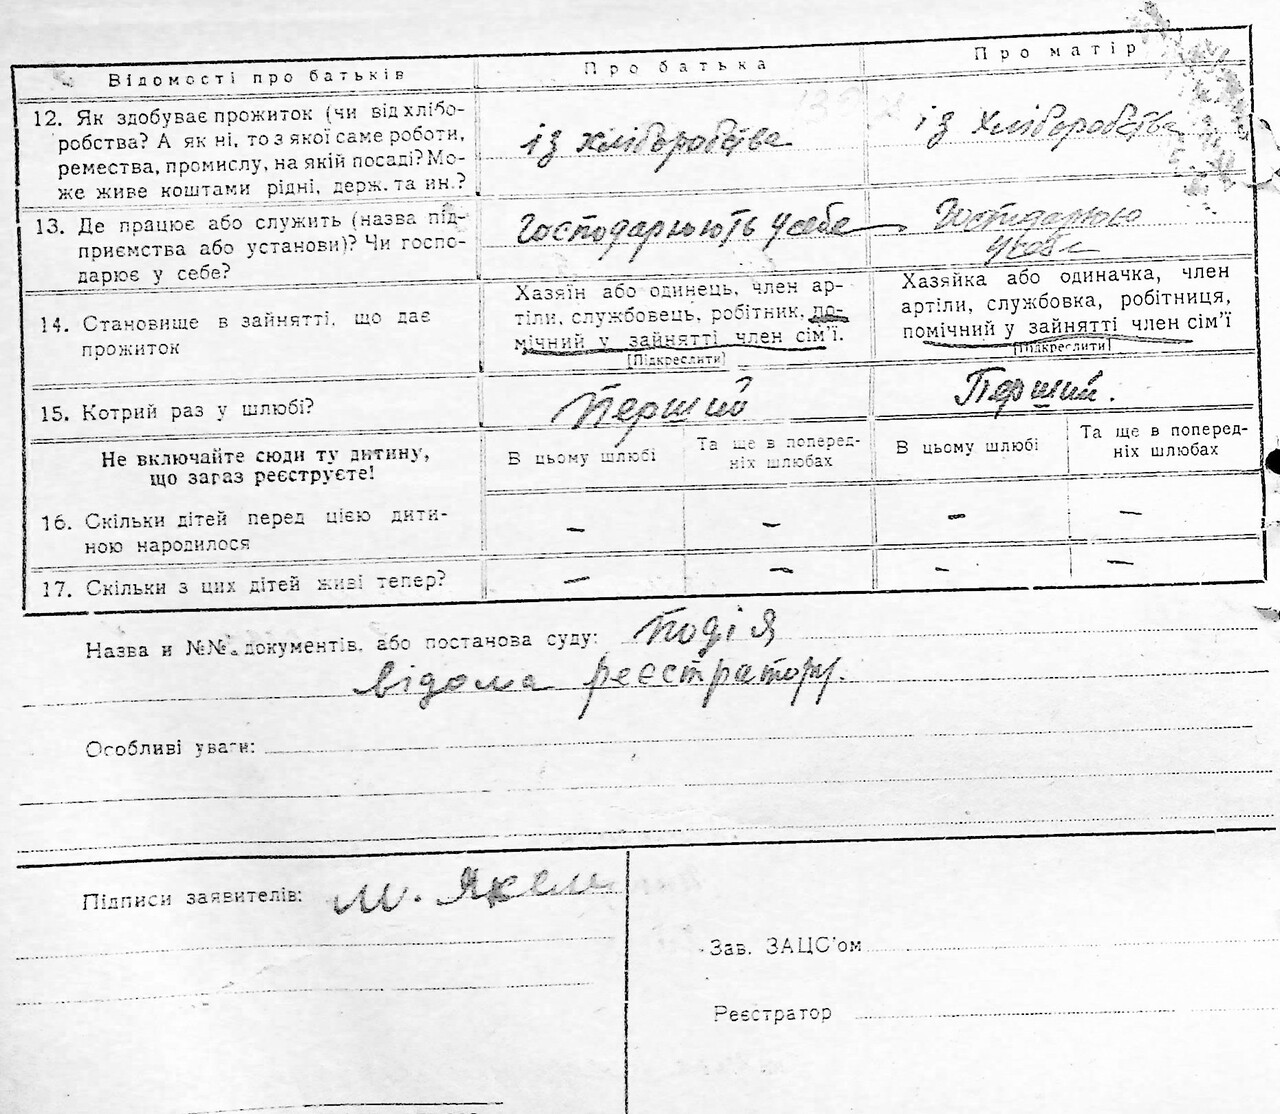 Відомості про батьків
Про батька
Про матір
12. Як здобуває прожиток (чи від хлібо-
робства? А як ні, то з якої саме роботи,
ремества, промислу, на якій посаді? Мо-
же живе коштами рідні, держ. та ин.?
із хліборобства
із хліборобства
13. Де працює або служить (назва під-
приємства або установи)? Чи госпо-
дарює у себе?
Господарюють у себе
Господарюю
у себе
14. Становище в зайнятті, що дає
прожиток
Хазяїн або одинець, член ар-
тіли, службовець, робітник, по-
мічний у зайнятті член сім'ї.
[Підкреслити]
Хазяйка або одиначка, член
артіли, службовка, робітниця,
помічний у зайнятті член сім'ї
[Підкреслити]
15. Котрий раз у шлюбі?
Перший
Перший.
Не включайте сюди ту дитину,
що загаз реєструєте!
В цьому шлюбі
Та ще в поперед-
ніх шлюбах
В цьому шлюбі
Та ще в поперед-
ніх шлюбах
16. Скільки дітей перед цією дити-
ною народилося
– – – –
17. Скільки з цих дітей живі тепер?
– – – –
Назва и №№ документів, або постанова суду: Подія
відома реєстратору.
Особливі уваги:
Підписи заявителів: М. Якем
Зав. ЗАЦС'ом
Реєстратор